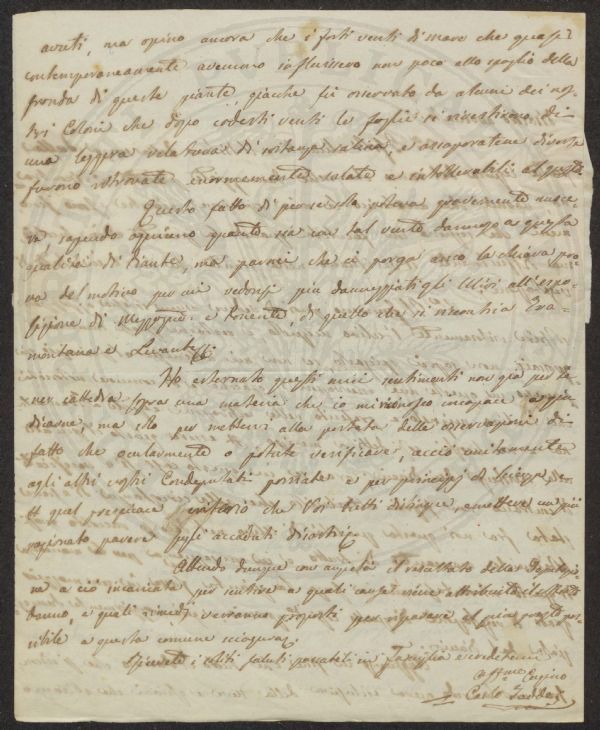 avuti, ma opino ancora che i forti venti di mare che quasi
contemporaneamente avemmo influissero non poco allo spoglio della
fronda di queste piante, giacchè fu osservato da alcuni dei nos=
tri Coloni che dopo codesti venti le foglie si rivestirono di
una leggera velatura di sostanza salina, e assaporatene diverse
furono ritrovate enormemente salate e intollerabili al gusto
Questo fatto di per se solo poteva gravemente nuoce=
re, sapendo ognuno quanto sia un tal vento dannoso a questa
qualità di Piante, ma parmi che ci porga anco la chiara pro=
va del motivo per cui vedonsi più danneggiati gli Ulivi all'espo=
sizione di Mezzogiorno e Ponente, di quello che si riscontra Tra=
montana e Levante
Ho esternato questi miei sentimenti non già per te=
ner cattedra sopra una materia che io mi riconosco incapace a giu=
dicarne, ma solo per mettervi alla portata delle osservazioni di
fatto che ocularmente o potute verificare, acciò unitamente
agli altri vostri Condeputati possiate e per principj di Scienza, e
quel perspicace criterio che Voi tutti distingue, emettere un più
ragionato parere sugli accaduti disastri
Attendo dunque con ansietà il resultato della Deputazio=
ne a ciò incaricata per sentire a quali cause viene attribuito il sofferto
danno, e quali rimedj verranno proposti per riparare al più presto pos=
sibile a questa comune sciagura
saluti in Famiglia e credetemi
Aff.mo Cugino
Carlo